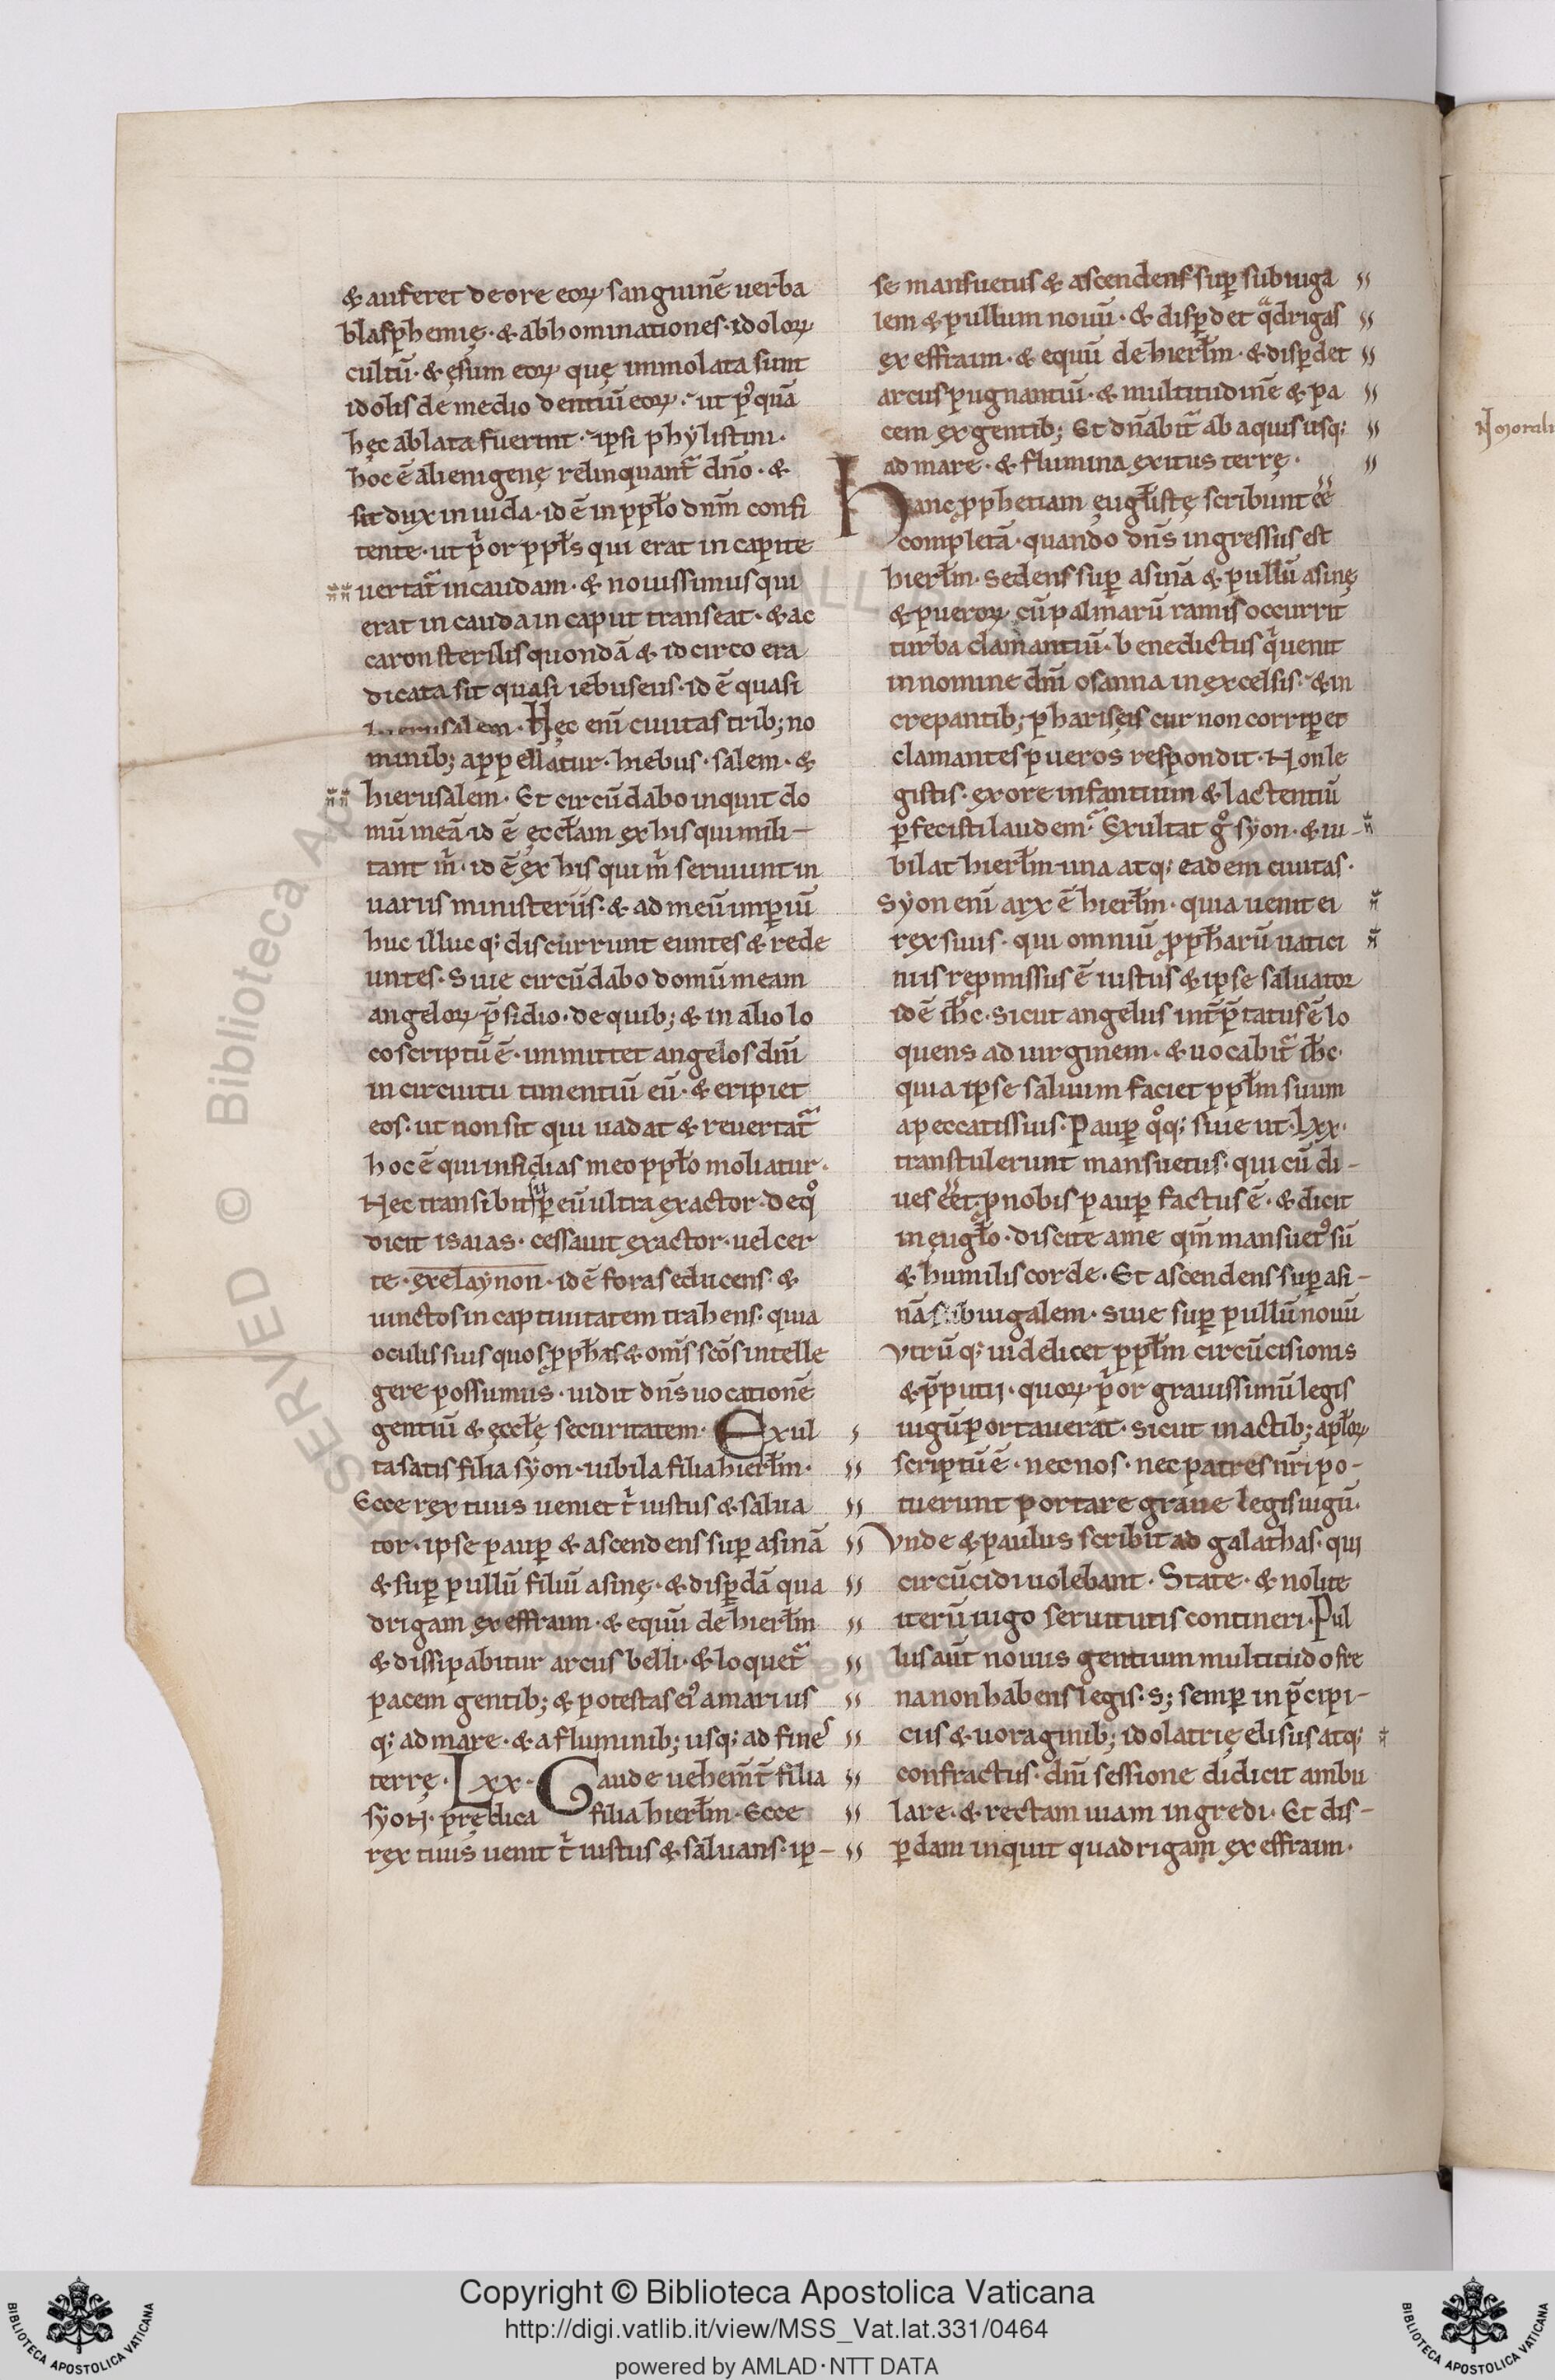 & auferet de ore eoꝝ sanguinē uerba
blasphemię · & abhominationes · idoloꝝ
cultū · & ęsum eoꝝ quę immolata sunt
idolis de medio dentiū eoꝝ · ut pꝰquā
hęc ablata fuerint · ipsi phylistini ·
hoc ē alienigenę relinquant᷑ dn̄o · &
sit dux in iuda · id ē in ppł̄o dn̄m confi
tente · ut pͥor ppł̄s qui erat in capite
uertat᷑ in caudam · & nouissimus qui
erat in cauda in caput transeat · & ac
caron sterilis quondā & idcirco era
dicata sit quasi iebuseus · id ē quasi
hierusalem · Hęc eni᷑ ciuitas trib; no
minib; appellatur · hiebus · salem · &
hierusalem · Et circūdabo inquit do
mū meā · id ē ęccłam ex his qui mili–
tant m̊ · id ē ex his qui m̊ seruiunt in
uariis ministeriis · & ad meū imꝑiū
huc illuc q; discurrunt euntes & rede
untes · Siue circūdabo domū meam
angeloꝝ p̄sidio · de quib; & in alio lo
co scriptū ē · inmittet angelos dn̄i
in circuitu timentiū eū · & eripiet
eos · ut non sit qui uadat & reuertat᷑
hoc ē qui insidias meo ppł̄o moliatur ·
Nec transibit suꝑ eū ultra exactor · de qͦ
dicit isaias · cessauit exactor · uel cer
te · exelaynon · id ē foras educens · &
uinctos in captiuitatem trahens · quia
oculis suis quos ꝓph̄as & om̄s scōs intelle
gere possumus · uidit dn̄s uocationē
gentiū & ęccłę securitatem · Exul
ta satis filia syon · iubila filia hierłm ·
Ecce rex tuus ueniet tͥ iustus & salua
tor · ipse pauꝑ & ascendens suꝑ asinā
& suꝑ pullū filiū asinę · & disꝑdā qua
drigam ex effraim · & equū de hierłm
& dissipabitur arcus belli · & loquet᷑
pacem gentib; & potestas eiꝰ a mari us
q; ad mare · & a fluminib; usq; ad fines
terrę · Lxx · Gaude uehem̄t̄ filia
syon · prędica filia hierłm · Ecce
rex tuus uenit tͥ iustus & saluans · ip–
se mansuetus & ascendens suꝑ subiuga
lem & pullum nouū · & disꝑdet qᵃdrigas
ex effraim · & equū de hierłm · & disꝑdet
arcus pugnantiū · & multitudinē & pa
cem ex gentib; Et dn̄abit᷑ ab aquis usq;
ad mare · & flumina exitus terrę ·
Hanc ꝓphetiam ęug̅listę scribunt ēē
completā · quando dn̄s ingressus est
hierłm · sedens suꝑ asinā & pullū asinę
& pueroꝝ cū palmarū ramis occurrit
turba clamantiū · benedictus qͥ uenit
in nomine dn̄i osanna in excelsis · & in
crepantib; pharisęis cur non corriꝑet
clamantes pueros respondit · Non le
gistis · ex ore infantium & lactentiū
ꝑfecisti laudem · Exultat gͦ syon · & iu–
bilat hierłm una atq; eadem ciuitas ·
Syon eni᷑ arx ē hierłm · quia uenit ei
rex suus · qui omniū ꝓph̄arū uatici
niis reꝓmissus ē iustus & ipse saluator
id ē ih̄c · sicut angelus int̄p̄tatus ē lo
quens ad uirginem · & uocabit᷑ ih̄c ·
quia ipse saluum faciet ppł̄m suum
a peccatis suis · Pauꝑ qͦq; siue ut · Lxx ·
transtulerunt mansuetus · qui cū di–
ues eēt · ꝓ nobis pauꝑ factus ē · & dicit
in ęug̅lo · discite a me qm̄ mansuetꝰ sū
& humilis corde · Et ascendens suꝑ asi–
nā subiugalem · siue suꝑ pullū nouū
Vtrū q; uidelicet ppł̄m circūcisionis
& p̄putij · quoꝝ pͥor grauissimū legis
iugū portauerat · sicut in actib; apłoꝝ
scriptū ē · nec nos · nec patres nr̄i po–
tuerunt portare graue legis iugū ·
Vnde & paulus scribit ad galathas · qui
circūcidi uolebant · State · & nolite
iterū iugo seruitutis contineri · Pul
lus aūt nouus gentium multitudo fre
na non habens legis · s; semꝑ in p̄cipi–
cus & uoraginib; idolatrię elisus atq;
confractus · dn̄i sessione didicit ambu
lare · & rectam uiam ingredi · Et dis–
ꝑdam inquit quadrigam ex effraim ·
Morali
Copyright © Biblioteca Apostolica Vaticana
http://digi.vatlib.it/view/MSS_Vat.lat.331/0464
powered by AMLAD·NTT DATA
BIBLIOTECA APOSTOLICA VATICANA
BIBLIOTECA APOSTOLICA VATICANA